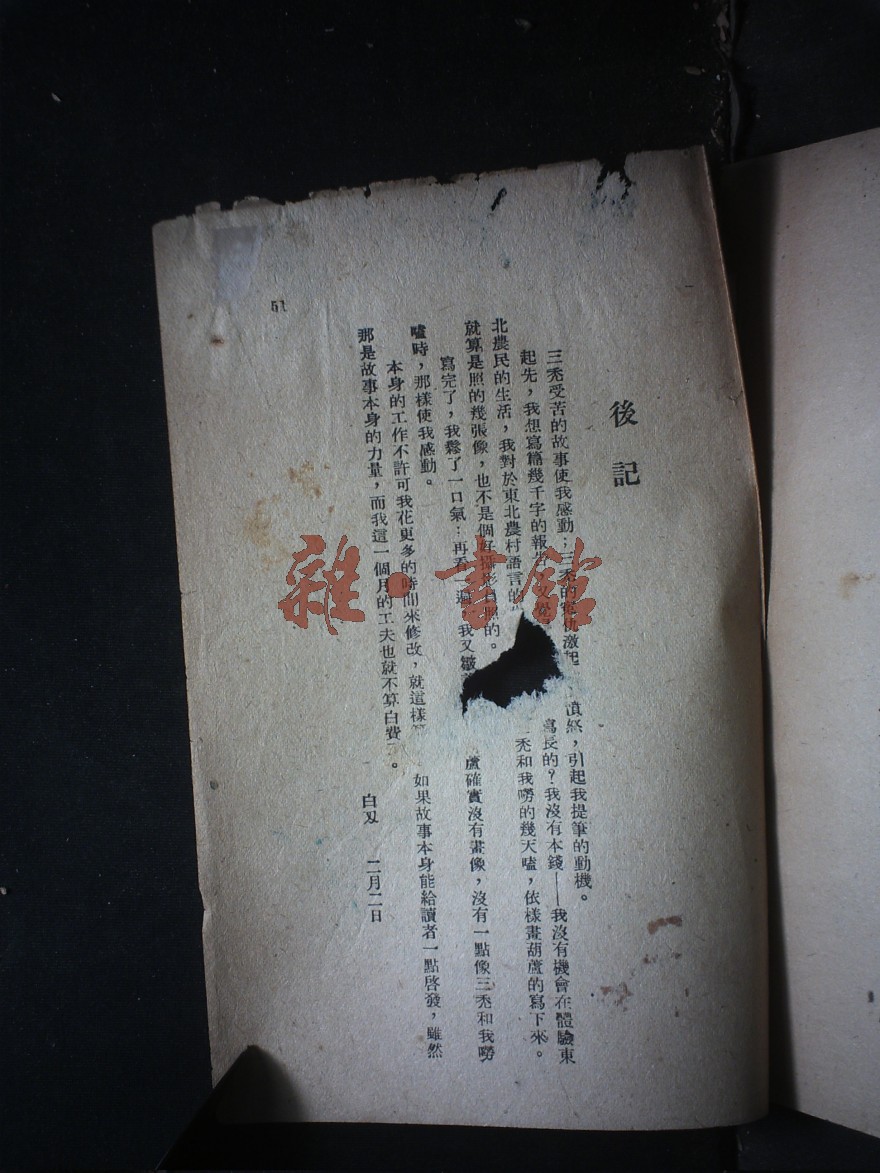 後記
三禿受苦的故事使我感動;三禿的冤仇激起 憤怒,引起我提筆的動機。
起先,我想寫篇幾千字的報告 寫長的?我沒有本錢——我沒有機會在體驗東
北農民的生活,我對於東北農村語言的 禿和我嘮的幾天嗑,依樣畫葫蘆的寫下來。
就算是照的幾張像,也不是個好攝影自照的。
寫完了,我鬆了一口氣:再看一遍 我又皺 蘆確實沒有畫像,沒有一點像三禿和我嘮
嗑時,那樣使我感動。
本身的工作不許可我花更多的時間來修改,就這樣 如果故事本身能給讀者一點啓發,雖然
那是故事本身的力量,而我這一個月的工夫也就不算白費 。
白刄 二月二日
51
雜·書館